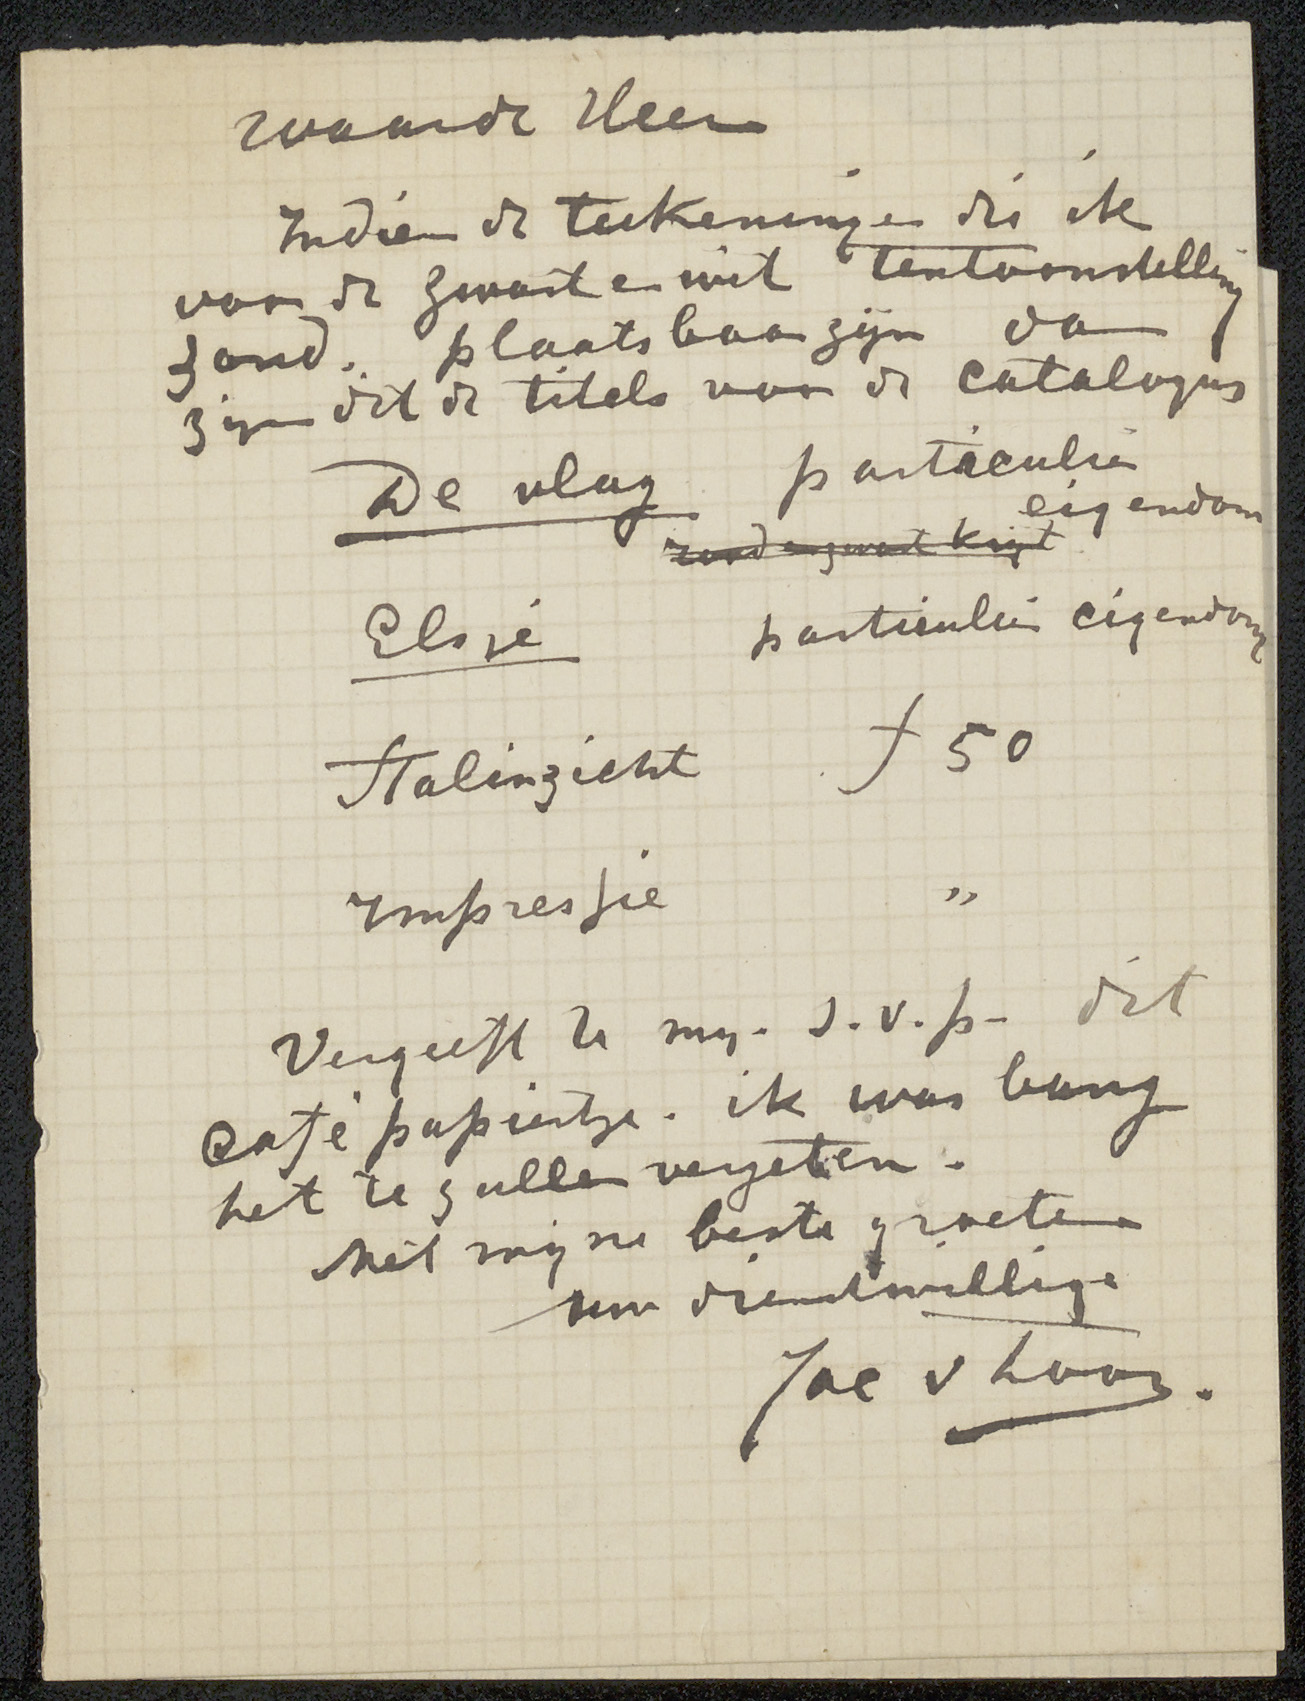 Waarde Heer
Indien de teekeningen die ik
voor de zwart en wit tentoonstelling
zond. plaatsbaar zijn dan
zijn dit de titels voor de catalogus
De vlag particulier
eigendom
Elsje particulier eigendom
Stalinzicht f 50
Impressie "
Vergeeft U mij. s.v.p. dit
café papiertje. ik was bang
het te zullen vergeten.
Met mijne beste groeten
Uw dienstwillige
Jac v Looy.